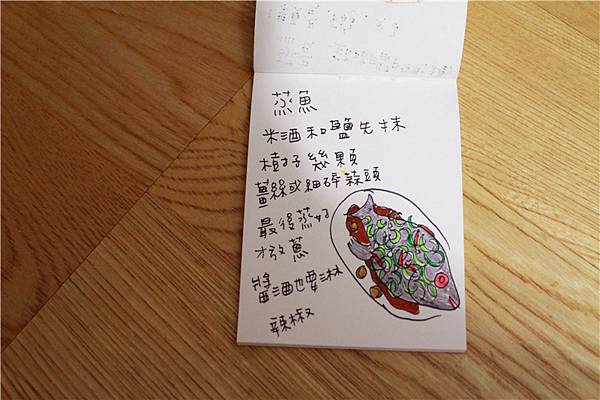 蒸魚
米酒和鹽先抹
樹子幾顆
薑絲或細碎蒜頭
最後蒸好
才放蔥
醬油也要淋
辣椒